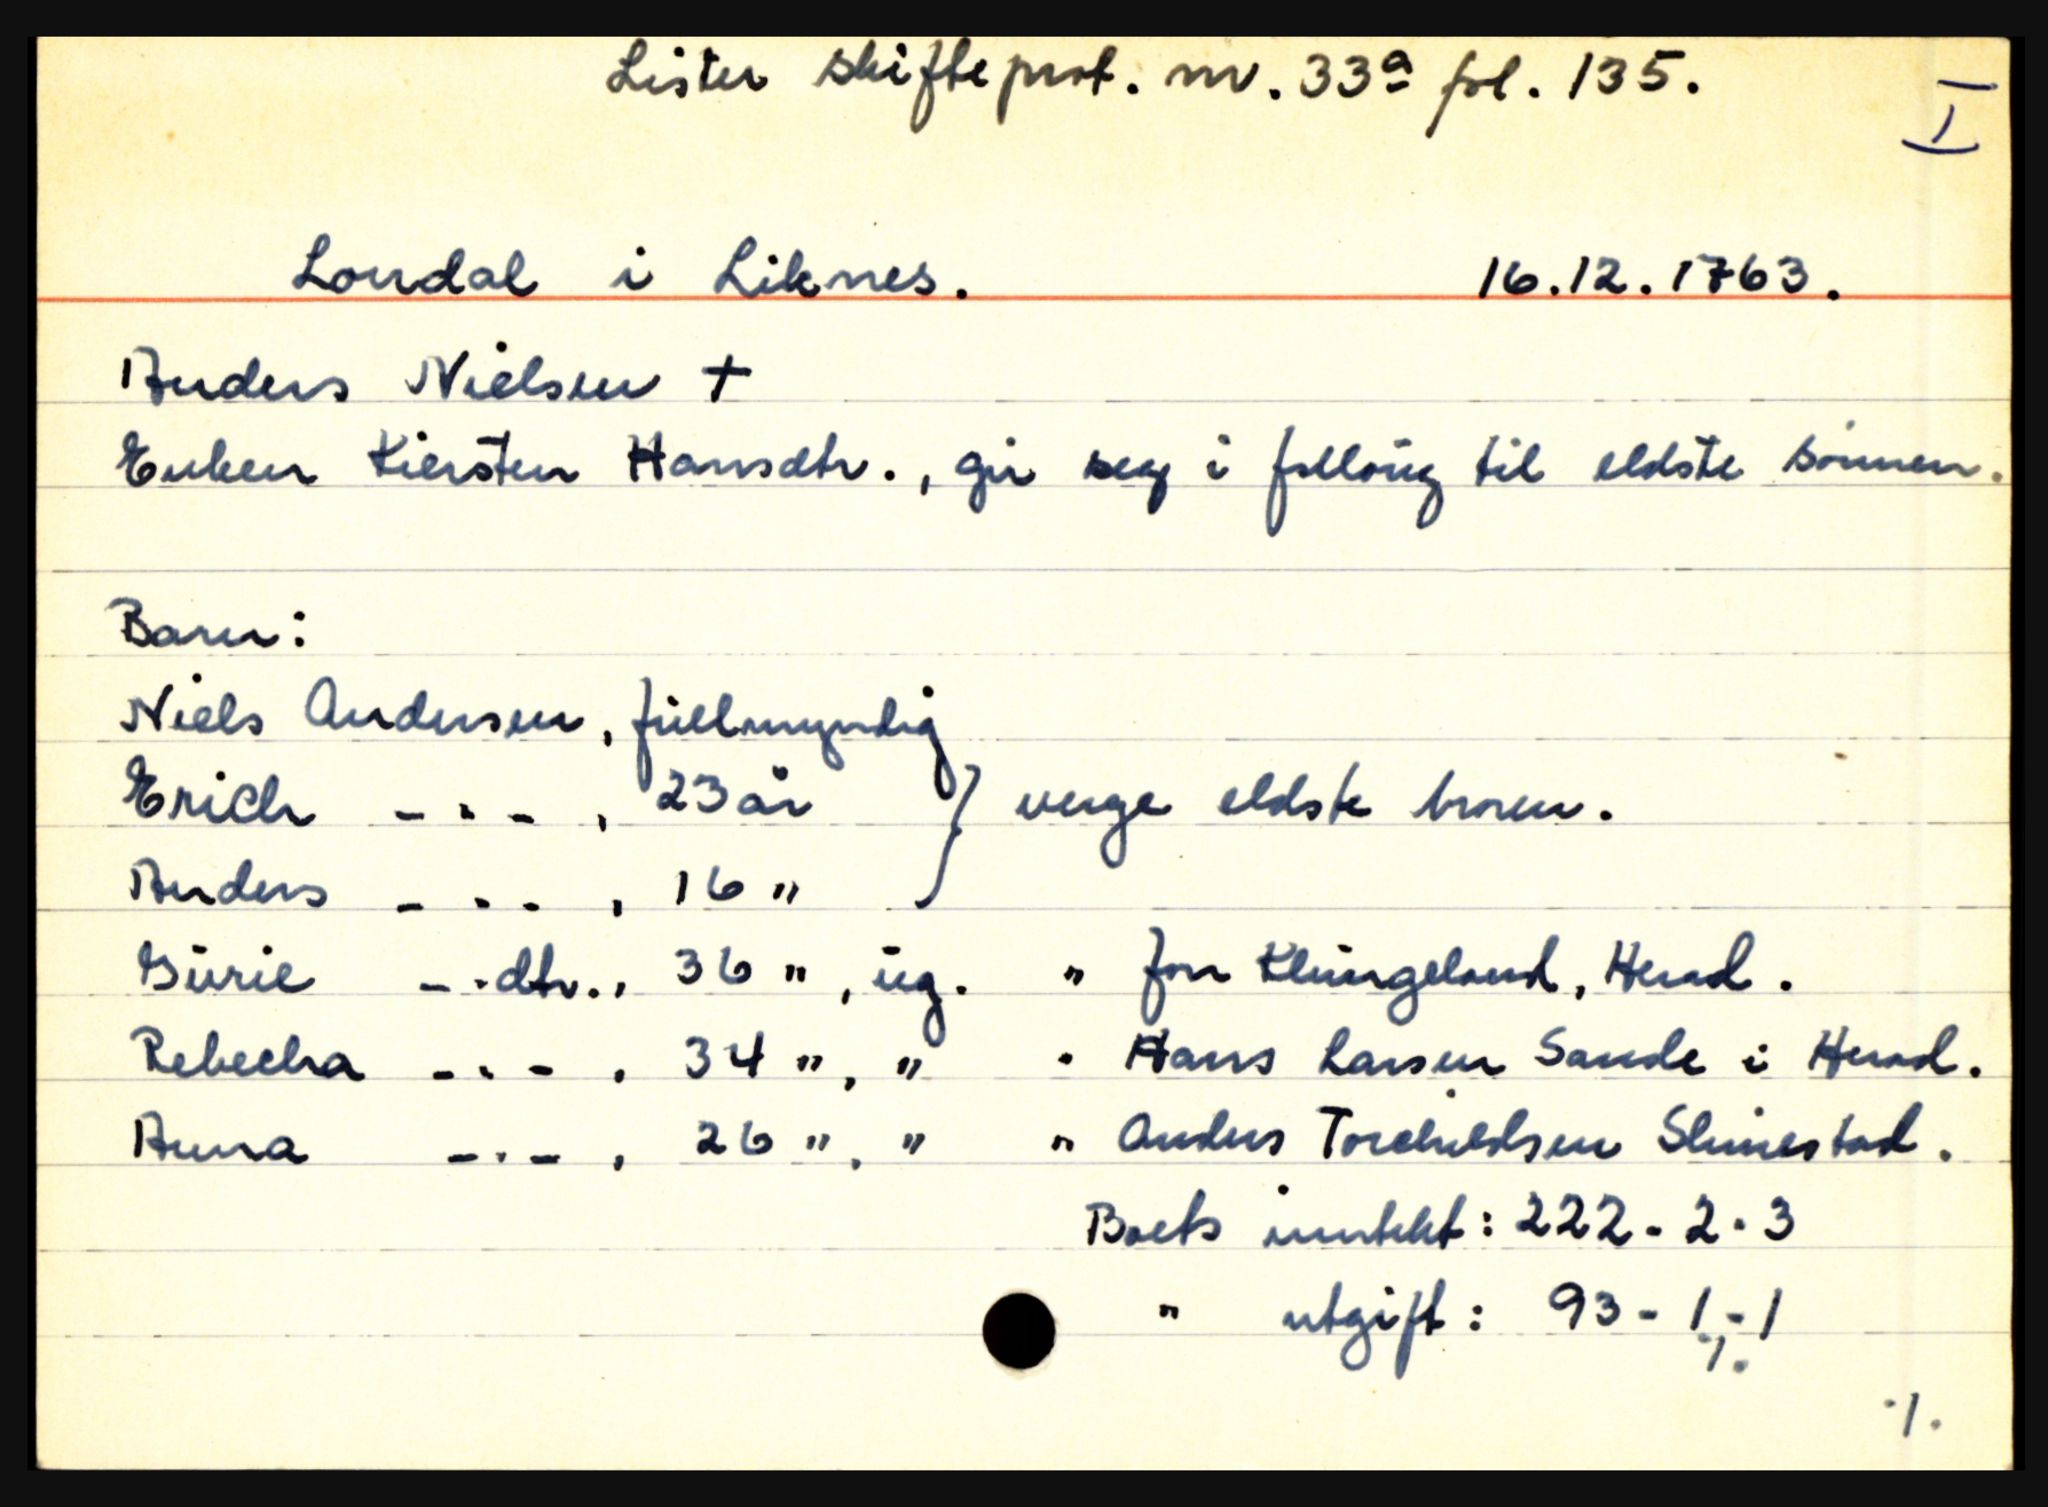 Lister skifteprot. nr. 33a fol. 135.
I
Londal i Liknes. 16.12.1763.
Anders Nielsen +
Enken Kiersten Hansdtr., gir seg i follaug til eldste sønnen.
Barn:
Niels Andersen, fullmyndig
Erich - " - , 23 år } verge eldste broren.
Anders - " - , 16 "
Gurie - " dtr., 36 ", ug. " Jon Klungeland, Herad.
Rebecka - " - , 34 ", " " Hans Larsen Sande i Herad.
Anna - " - , 26 ", " " Anders Torchildsen Slimestad.
Boets inntekt: 222 - 2 - 3
" utgift: 93 - 1 - 1
./.
./.